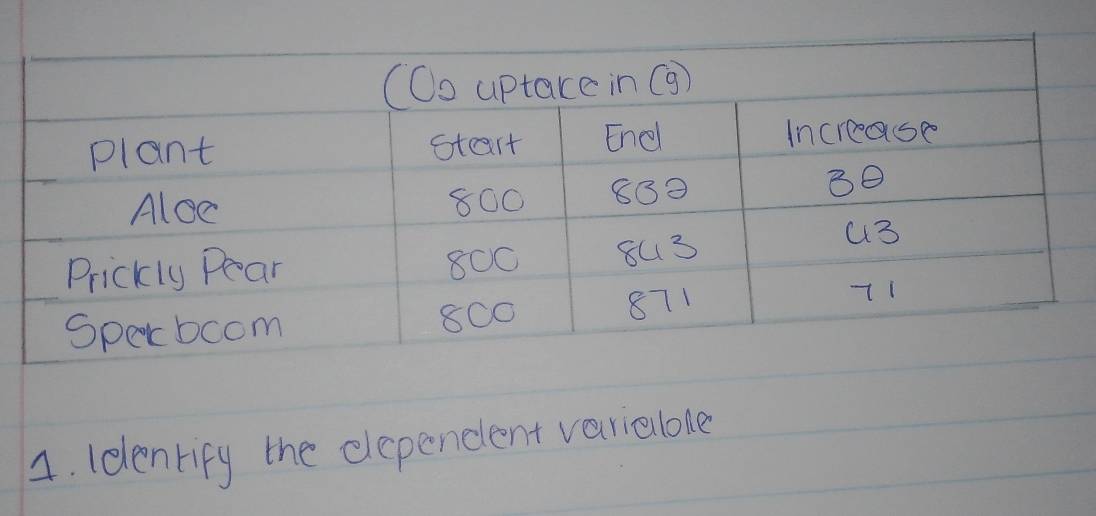 CO2 uptake in (g)
Plant Start End Increase
Aloe 800 832 32
Prickly Pear 800 843 43
Spekboom 800 871 71
1. Identify the dependent variable